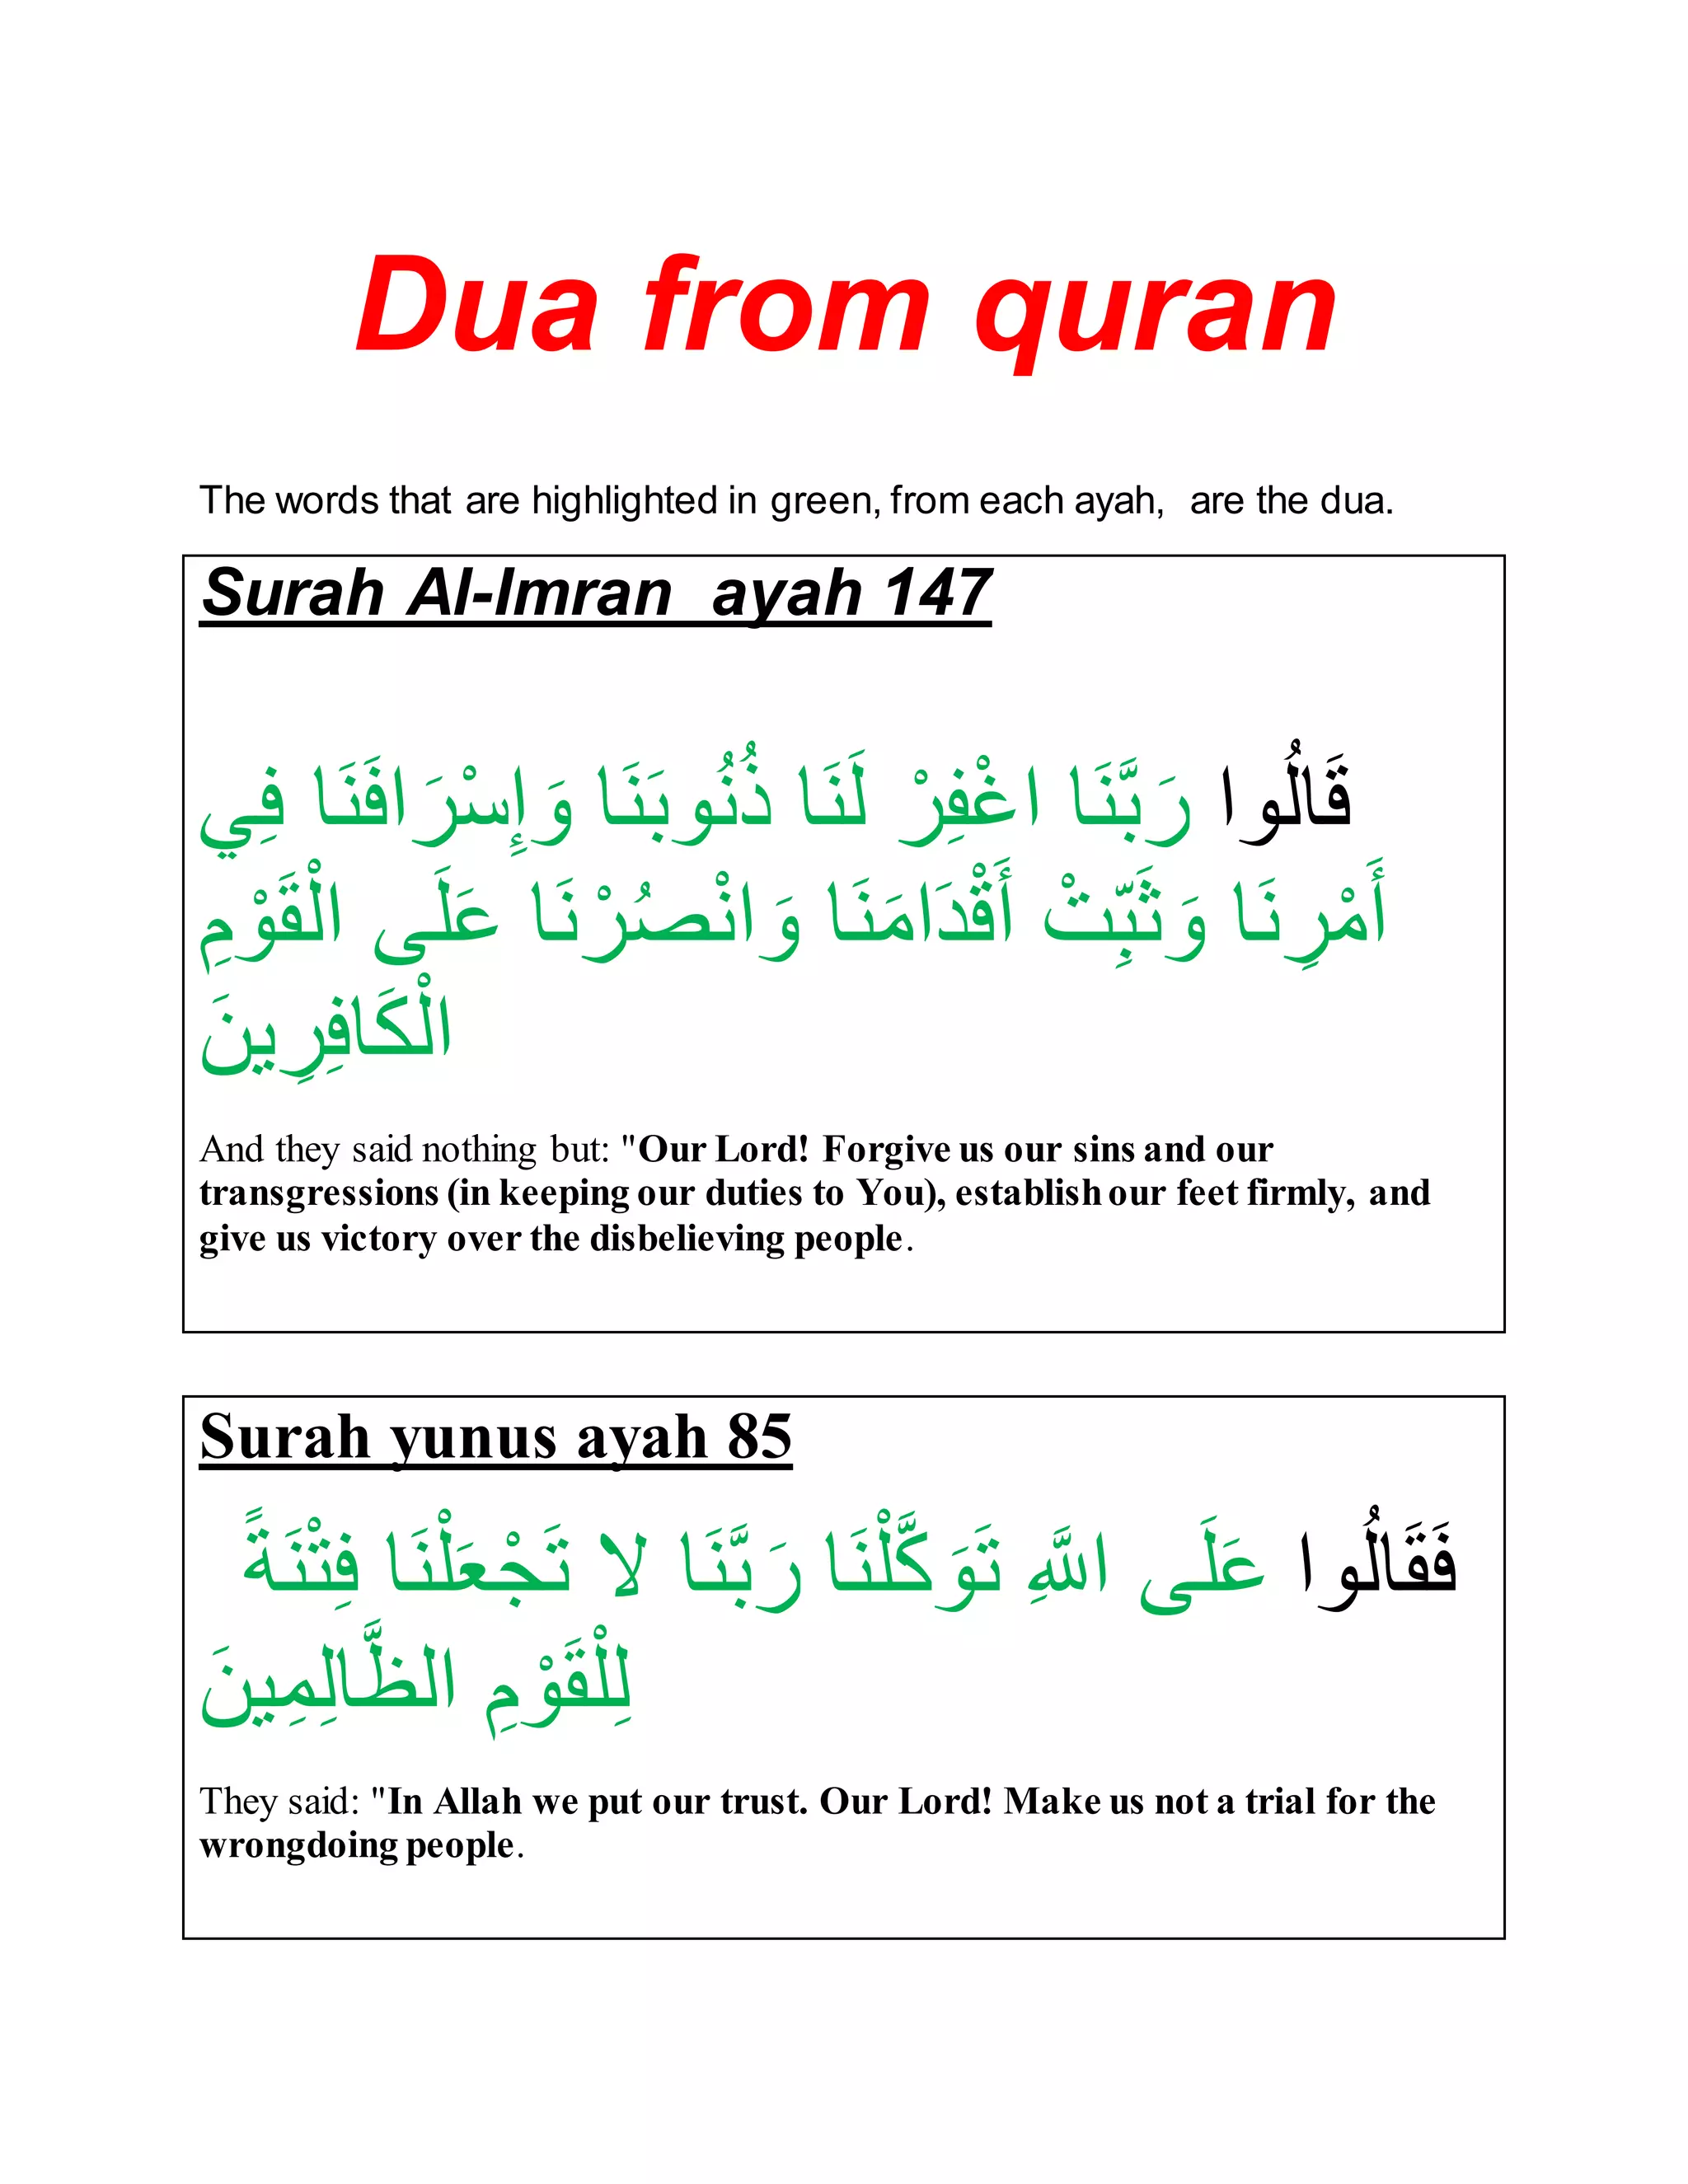 Dua from quran
The words that are highlighted in green, from each ayah, are the dua.
Surah Al-Imran ayah 147
قَالُوا رَبَّنَا اغْفِرْ لَنَا ذُنُوبَنَا وَإِسْرَافَنَا فِي
أَمْرِنَا وَثَبِّتْ أَقْدَامَنَا وَانْصُرْنَا عَلَى الْقَوْمِ
الْكَافِرِينَ
And they said nothing but: "Our Lord! Forgive us our sins and our
transgressions (in keeping our duties to You), establish our feet firmly, and
give us victory over the disbelieving people.
Surah yunus ayah 85
فَقَالُوا عَلَى اللَّهِ تَوَكَّلْنَا رَبَّنَا لا تَجْعَلْنَا فِتْنَةً
لِلْقَوْمِ الظَّالِمِينَ
They said: "In Allah we put our trust. Our Lord! Make us not a trial for the
wrongdoing people.